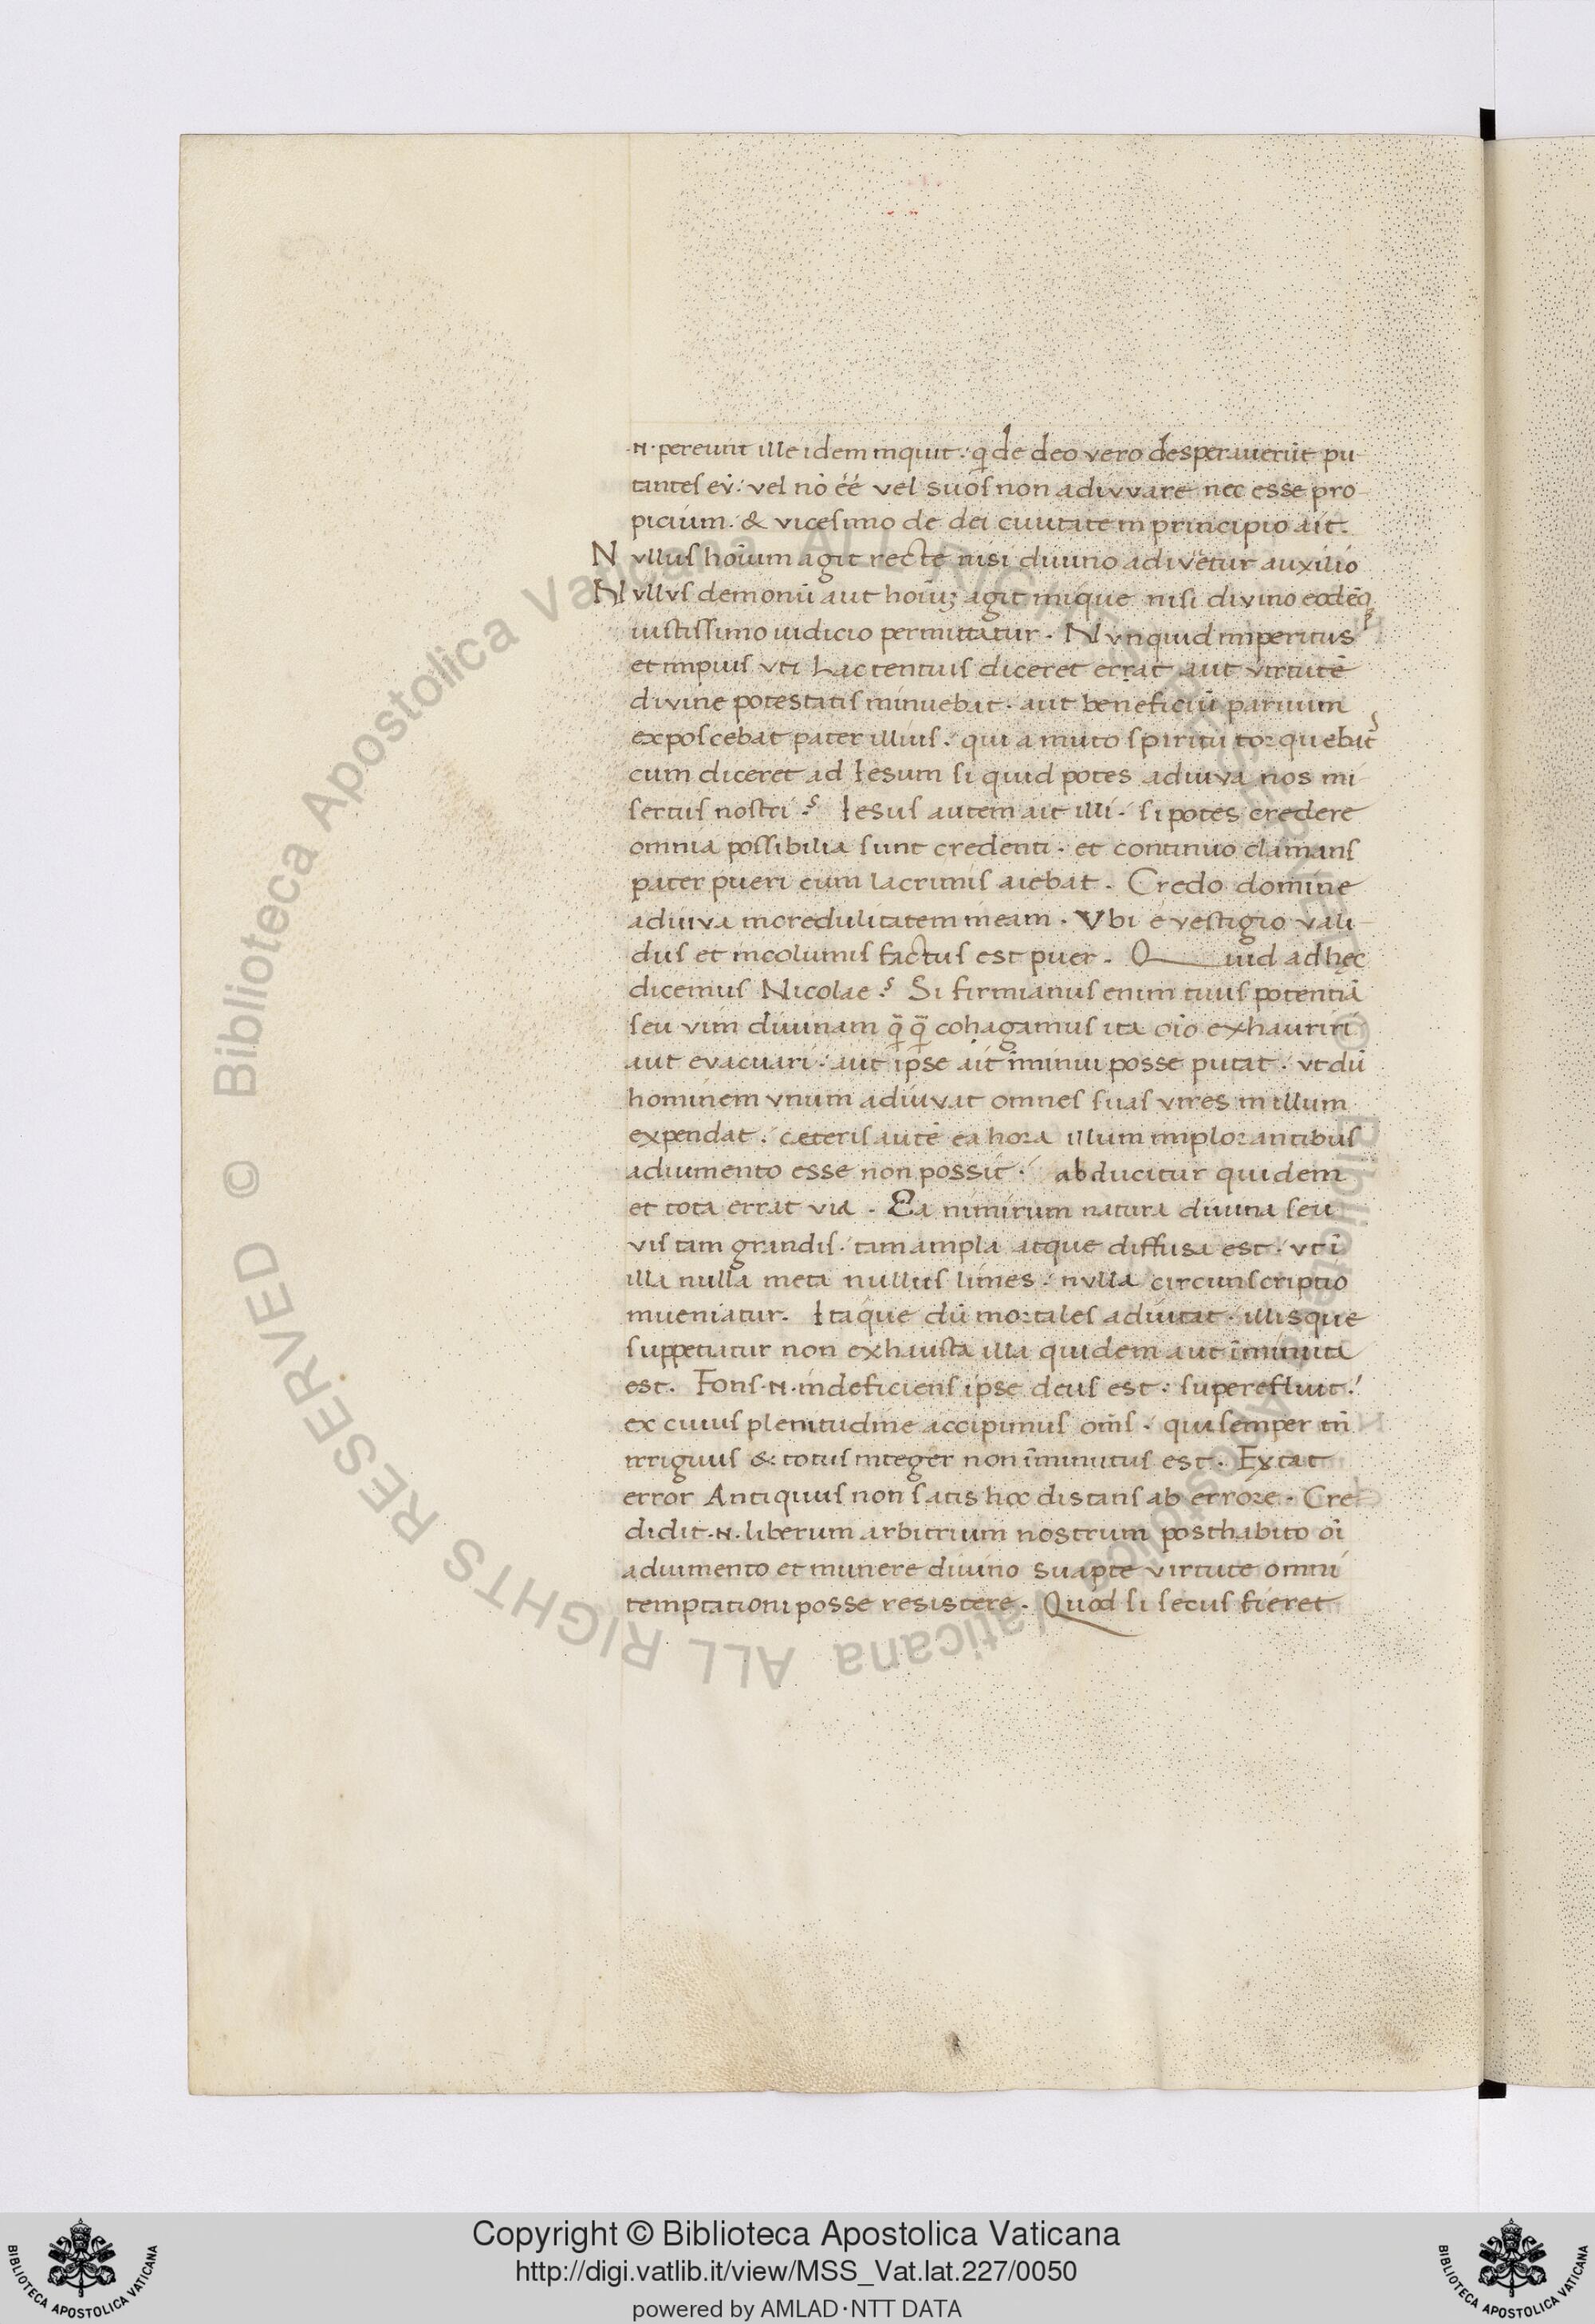 .n. pereunt ille idem inquit. q̄ de deo vero desperauerūt pu
tantes eū. vel nō éé vel suos non adiuuare nec esse pro
picium. & vicesimo de dei ciuitate in principio ait.
Nvllus hoīum agit recte nisi diuino adiuetur auxilio
Nvllvs demonū aut hoīuꝫ agit inique nisi divino eodēqꝫ
iustissimo iudicio permittatur. Nvnquid imperitus
et impius vti Lactentius diceret errat aut virtutē
divine potestatis minuebat. aut beneficiū paruum
exposcebat pater illius. qui a muto spiritu torquebat᷑
cum diceret ad Iesum si quid potes adiuva nos mi
sertus nostri. Iesus autem ait illi. si potes credere
omnia possibilia sunt credenti. et continuo clamans
pater pueri cum lacrimis aiebat. Credo domine
adiuva incredulitatem meam. Vbi e vestigio vali
dus et incolumis factus est puer. Quid ad hęc
dicemus Nicolae? Si firmianus enim tuus potentiā
seu vim diuinam q̄q̄ coḥagamus ita oīo exhauriri
aut evacuari. aut ipse ait īminui posse putat. vt dū
hominem vnum adiuvat omnes suas vires in illum
expendat. ceteris autē ea hora illum implorantibus
adiumento esse non possit. abducitur quidem
et tota errat via. Ea nimirum natura diuina seu
vis tam grandis. tam ampla atque diffusa est. vt ī
illa nulla meta nullus limes. nvlla circunscriptio
inueniatur. Itaque dū mortales adiutat. illisque
suppetiatur non exhausta illa quidem aut īminuta
est. Fons .n. indeficiens ipse deus est. superefluit.
ex cuius plenitudine accipimus om̄s. qui semper tn̄
irriguus & totus integer non īminutus est. Extat
error Antiquus non satis hoc distans ab errore. Cre
didit .n. liberum arbitrium nostrum posthabito oī
adiumento et munere diuino suapte virtute omni
temptationi posse resistere. Quod si secus fieret
Copyright © Biblioteca Apostolica Vaticana
http://digi.vatlib.it/view/MSS_Vat.lat.227/0050
powered by AMLAD·NTT DATA